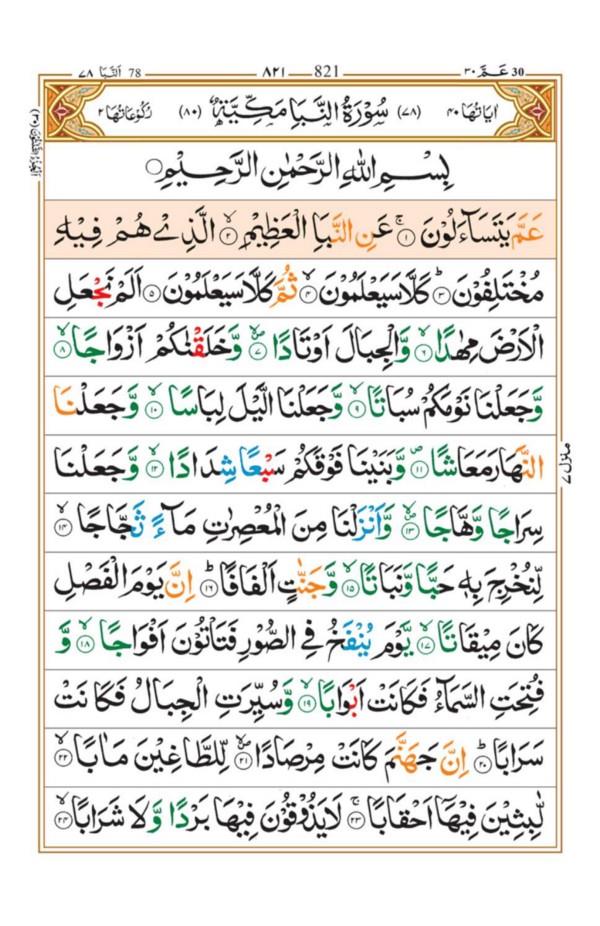 ٧٨ اَلنَّبَا 78 ٨٢١ — 821 عَمَّ ٣٠ 30
اٰيَاتُهَا ٤٠ (٧٨) سُوْرَةُ النَّبَاِ مَكِّيَّةٌ (٨٠) رُكُوْعَاتُهَا ٢
بِسْمِ اللّٰهِ الرَّحْمٰنِ الرَّحِيْمِ ○
عَمَّ يَتَسَآءَلُوْنَ ۚ ١ عَنِ النَّبَاِ الْعَظِيْمِ ۙ ٢ الَّذِيْ هُمْ فِيْهِ
مُخْتَلِفُوْنَ ؕ ٣ كَلَّا سَيَعْلَمُوْنَ ۙ ٤ ثُمَّ كَلَّا سَيَعْلَمُوْنَ ٥ اَلَمْ نَجْعَلِ
الْاَرْضَ مِهٰدًا ۙ ٦ وَّالْجِبَالَ اَوْتَادًا ۪ۙ ٧ وَّخَلَقْنٰكُمْ اَزْوَاجًا ۙ ٨
وَّجَعَلْنَا نَوْمَكُمْ سُبَاتًا ۙ ٩ وَّجَعَلْنَا الَّيْلَ لِبَاسًا ۙ ١٠ وَّجَعَلْنَا
النَّهَارَ مَعَاشًا ۪ ١١ وَّبَنَيْنَا فَوْقَكُمْ سَبْعًا شِدَادًا ۙ ١٢ وَّجَعَلْنَا
سِرَاجًا وَّهَّاجًا ۪ۙ ١٣ وَّاَنْزَلْنَا مِنَ الْمُعْصِرٰتِ مَآءً ثَجَّاجًا ۙ ١٤
لِّنُخْرِجَ بِهٖ حَبًّا وَّنَبَاتًا ۙ ١٥ وَّجَنّٰتٍ اَلْفَافًا ؕ ١٦ اِنَّ يَوْمَ الْفَصْلِ
كَانَ مِيْقَاتًا ۙ ١٧ يَّوْمَ يُنْفَخُ فِي الصُّوْرِ فَتَاْتُوْنَ اَفْوَاجًا ۙ ١٨ وَّ
فُتِحَتِ السَّمَآءُ فَكَانَتْ اَبْوَابًا ۙ ١٩ وَّسُيِّرَتِ الْجِبَالُ فَكَانَتْ
سَرَابًا ؕ ٢٠ اِنَّ جَهَنَّمَ كَانَتْ مِرْصَادًا ۪ۙ ٢١ لِّلطَّاغِيْنَ مَاٰبًا ۙ ٢٢
لّٰبِثِيْنَ فِيْهَاۤ اَحْقَابًا ۚ ٢٣ لَا يَذُوْقُوْنَ فِيْهَا بَرْدًا وَّلَا شَرَابًا ۙ ٢٤
منزل ٧